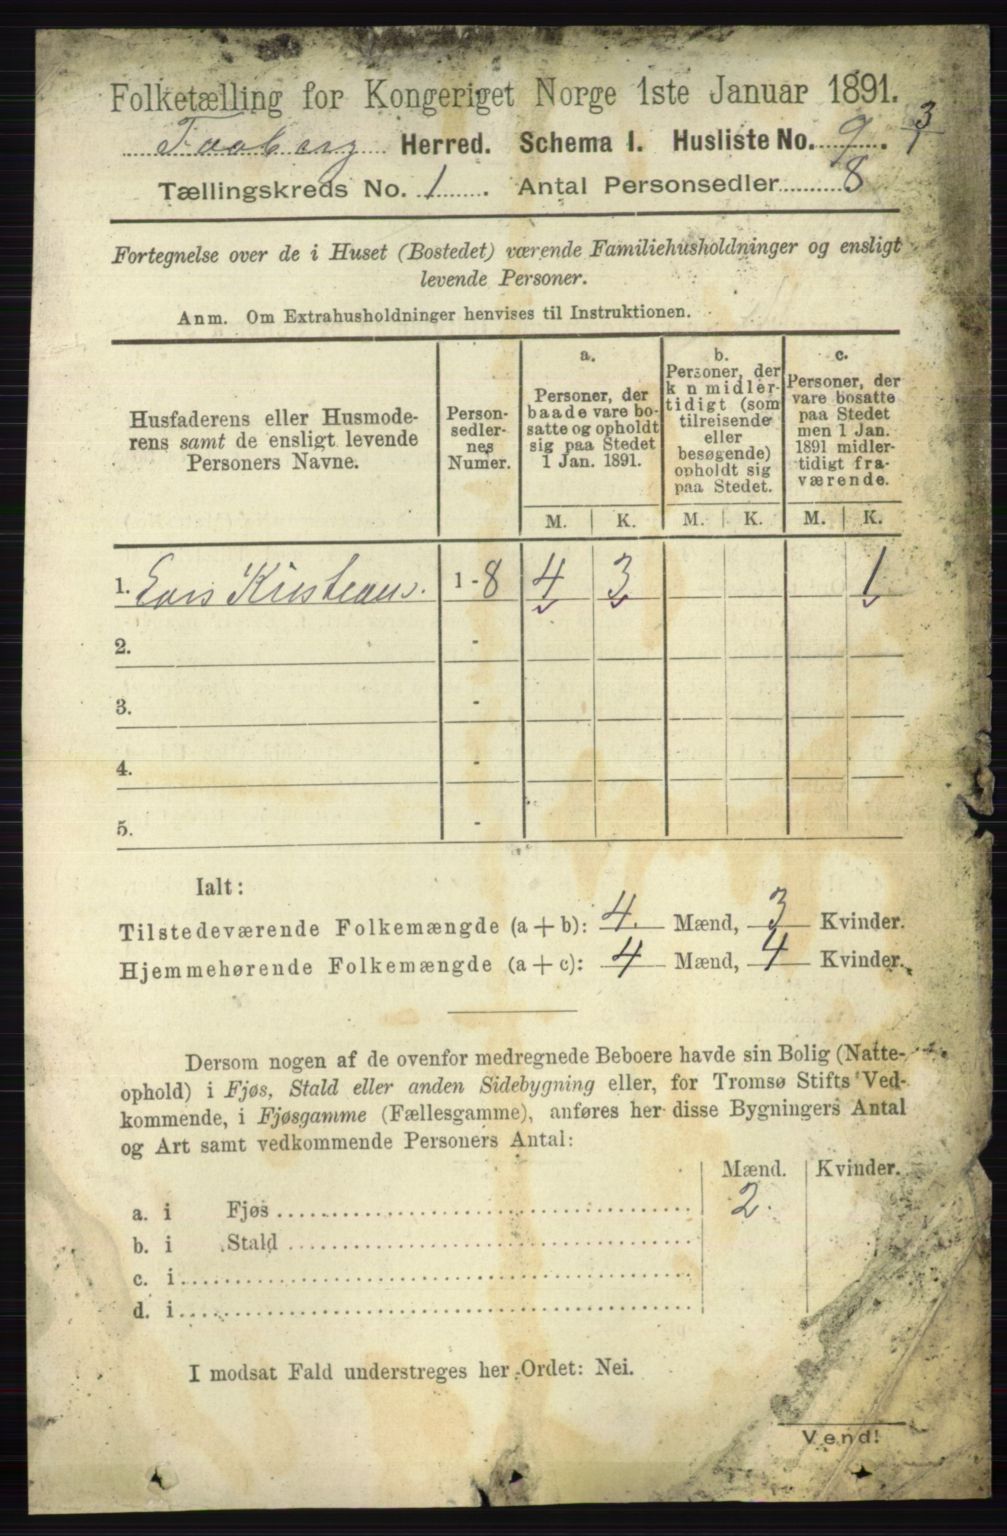 Folketælling for Kongeriget Norge 1ste Januar 1891.
Faaberg Herred. Schema I. Husliste No. 9. 3/1
Tællingskreds No. 1. Antal Personsedler 8
Fortegnelse over de i Huset (Bostedet) værende Familiehusholdninger og ensligt
levende Personer.
Anm. Om Extrahusholdninger henvises til Instruktionen.
Husfaderens eller Husmode-
rens samt de ensligt levende
Personers Navne.
Person-
sedler-
nes
Numer.
a.
Personer, der
baade vare bo-
satte og opholdt
sig paa Stedet
1 Jan. 1891.
b.
Personer, der
k n midler-
tidigt (som
tilreisende
eller
besøgende)
opholdt sig
paa Stedet.
c.
Personer, der
vare bosatte
paa Stedet
men 1 Jan.
1891 midler-
tidigt fra-
værende.
M. K. M. K. M. K.
1. Lars Kristians. 1 - 8 4 3 1
2. -
3. -
4. -
5. -
Ialt:
Tilstedeværende Folkemængde (a + b): 4 Mænd, 3 Kvinder.
Hjemmehørende Folkemængde (a + c): 4 Mænd, 4 Kvinder.
Dersom nogen af de ovenfor medregnede Beboere havde sin Bolig (Natte-
ophold) i Fjøs, Stald eller anden Sidebygning eller, for Tromsø Stifts Ved-
kommende, i Fjøsgamme (Fællesgamme), anføres her disse Bygningers Antal
og Art samt vedkommende Personers Antal:
Mænd. Kvinder.
a. i Fjøs 2.
b. i Stald
c. i
d. i
I modsat Fald understreges her Ordet: Nei.
Vend!